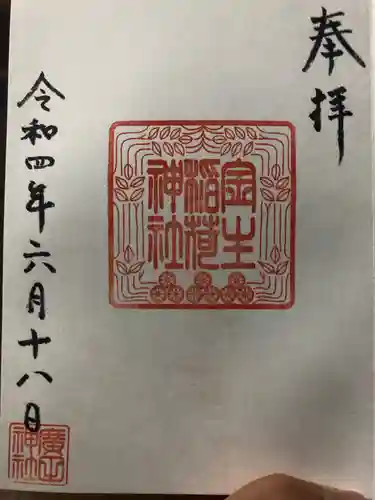 奉拝
金生
稲荷
神社
令和四年六月十八日
廣田
神社